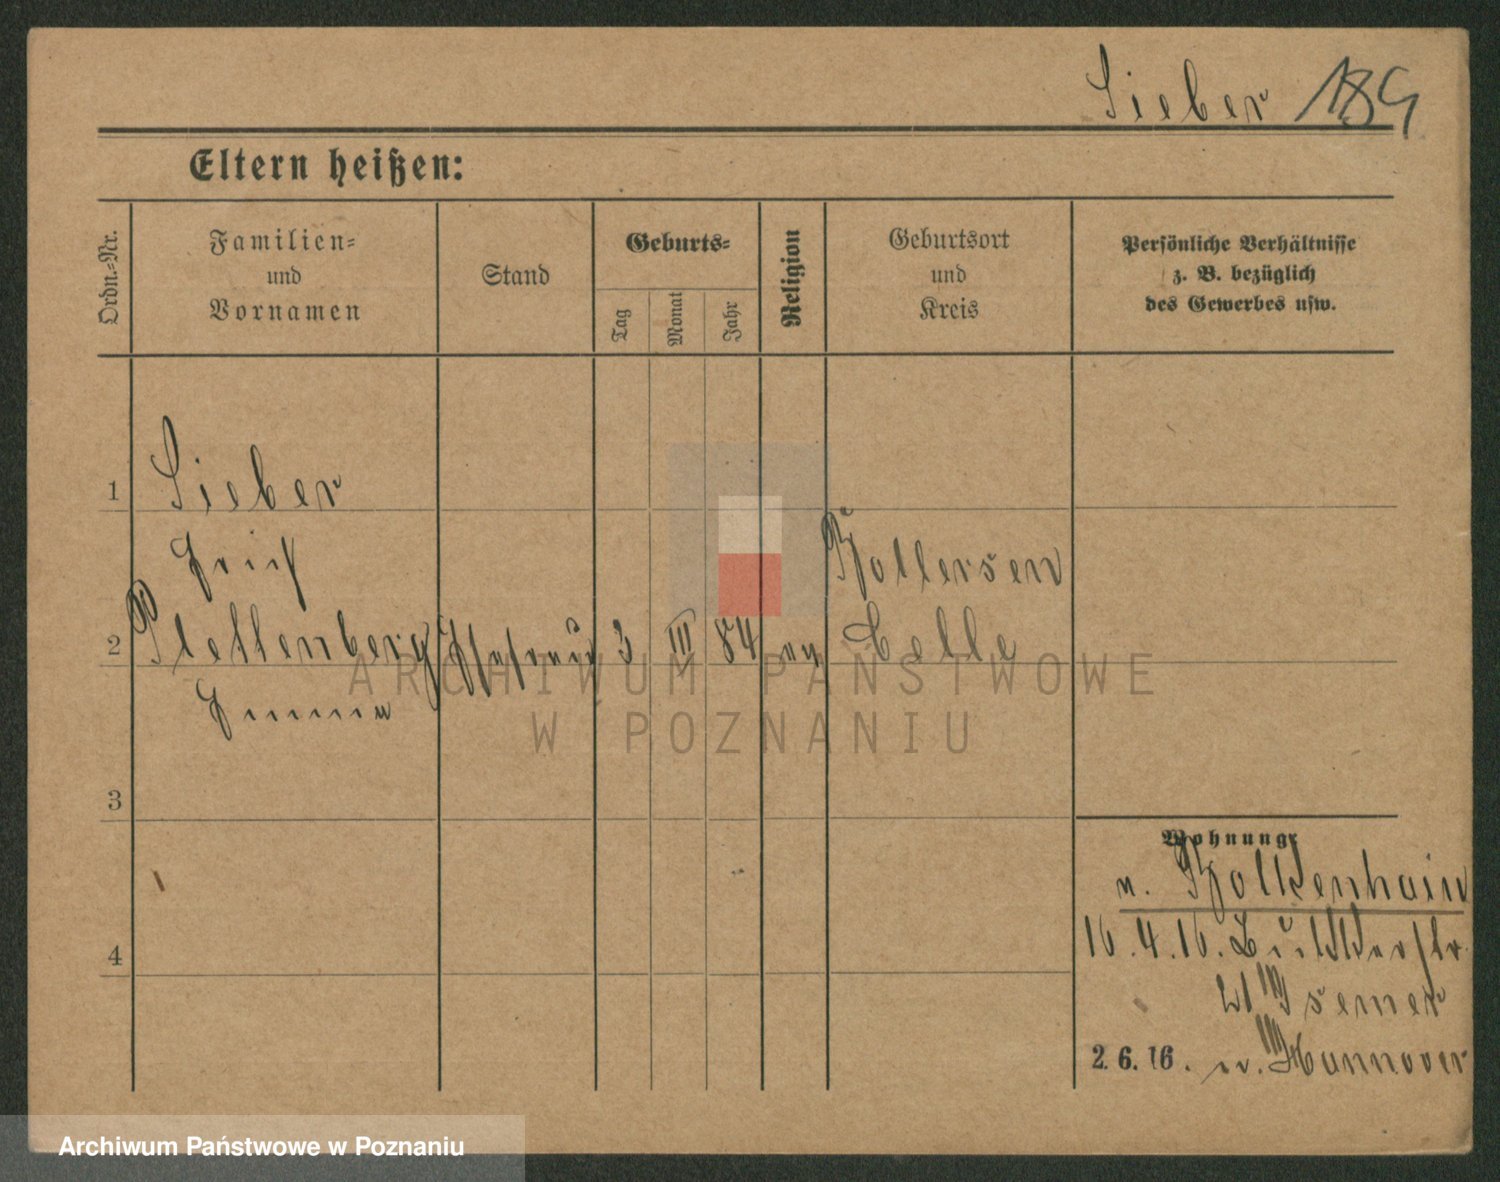 Sieber 189
Eltern heißen:
Ordn.-Nr.
Familien-
und
Vornamen
Stand
Geburts-
Tag
Monat
Jahr
Religion
Geburtsort
und
Kreis
Persönliche Verhältnisse
z. B. bezüglich
des Gewerbes usw.
1
Sieber
2
Plettenberg Ehefrau 3 III 84 ev Celle
Emma
3
4
Wohnung:
v. Bolkenhain
16.4.16.
2.6.16. n. Hannover
ARCHIWUM PAŃSTWOWE
W POZNANIU
Archiwum Państwowe w Poznaniu